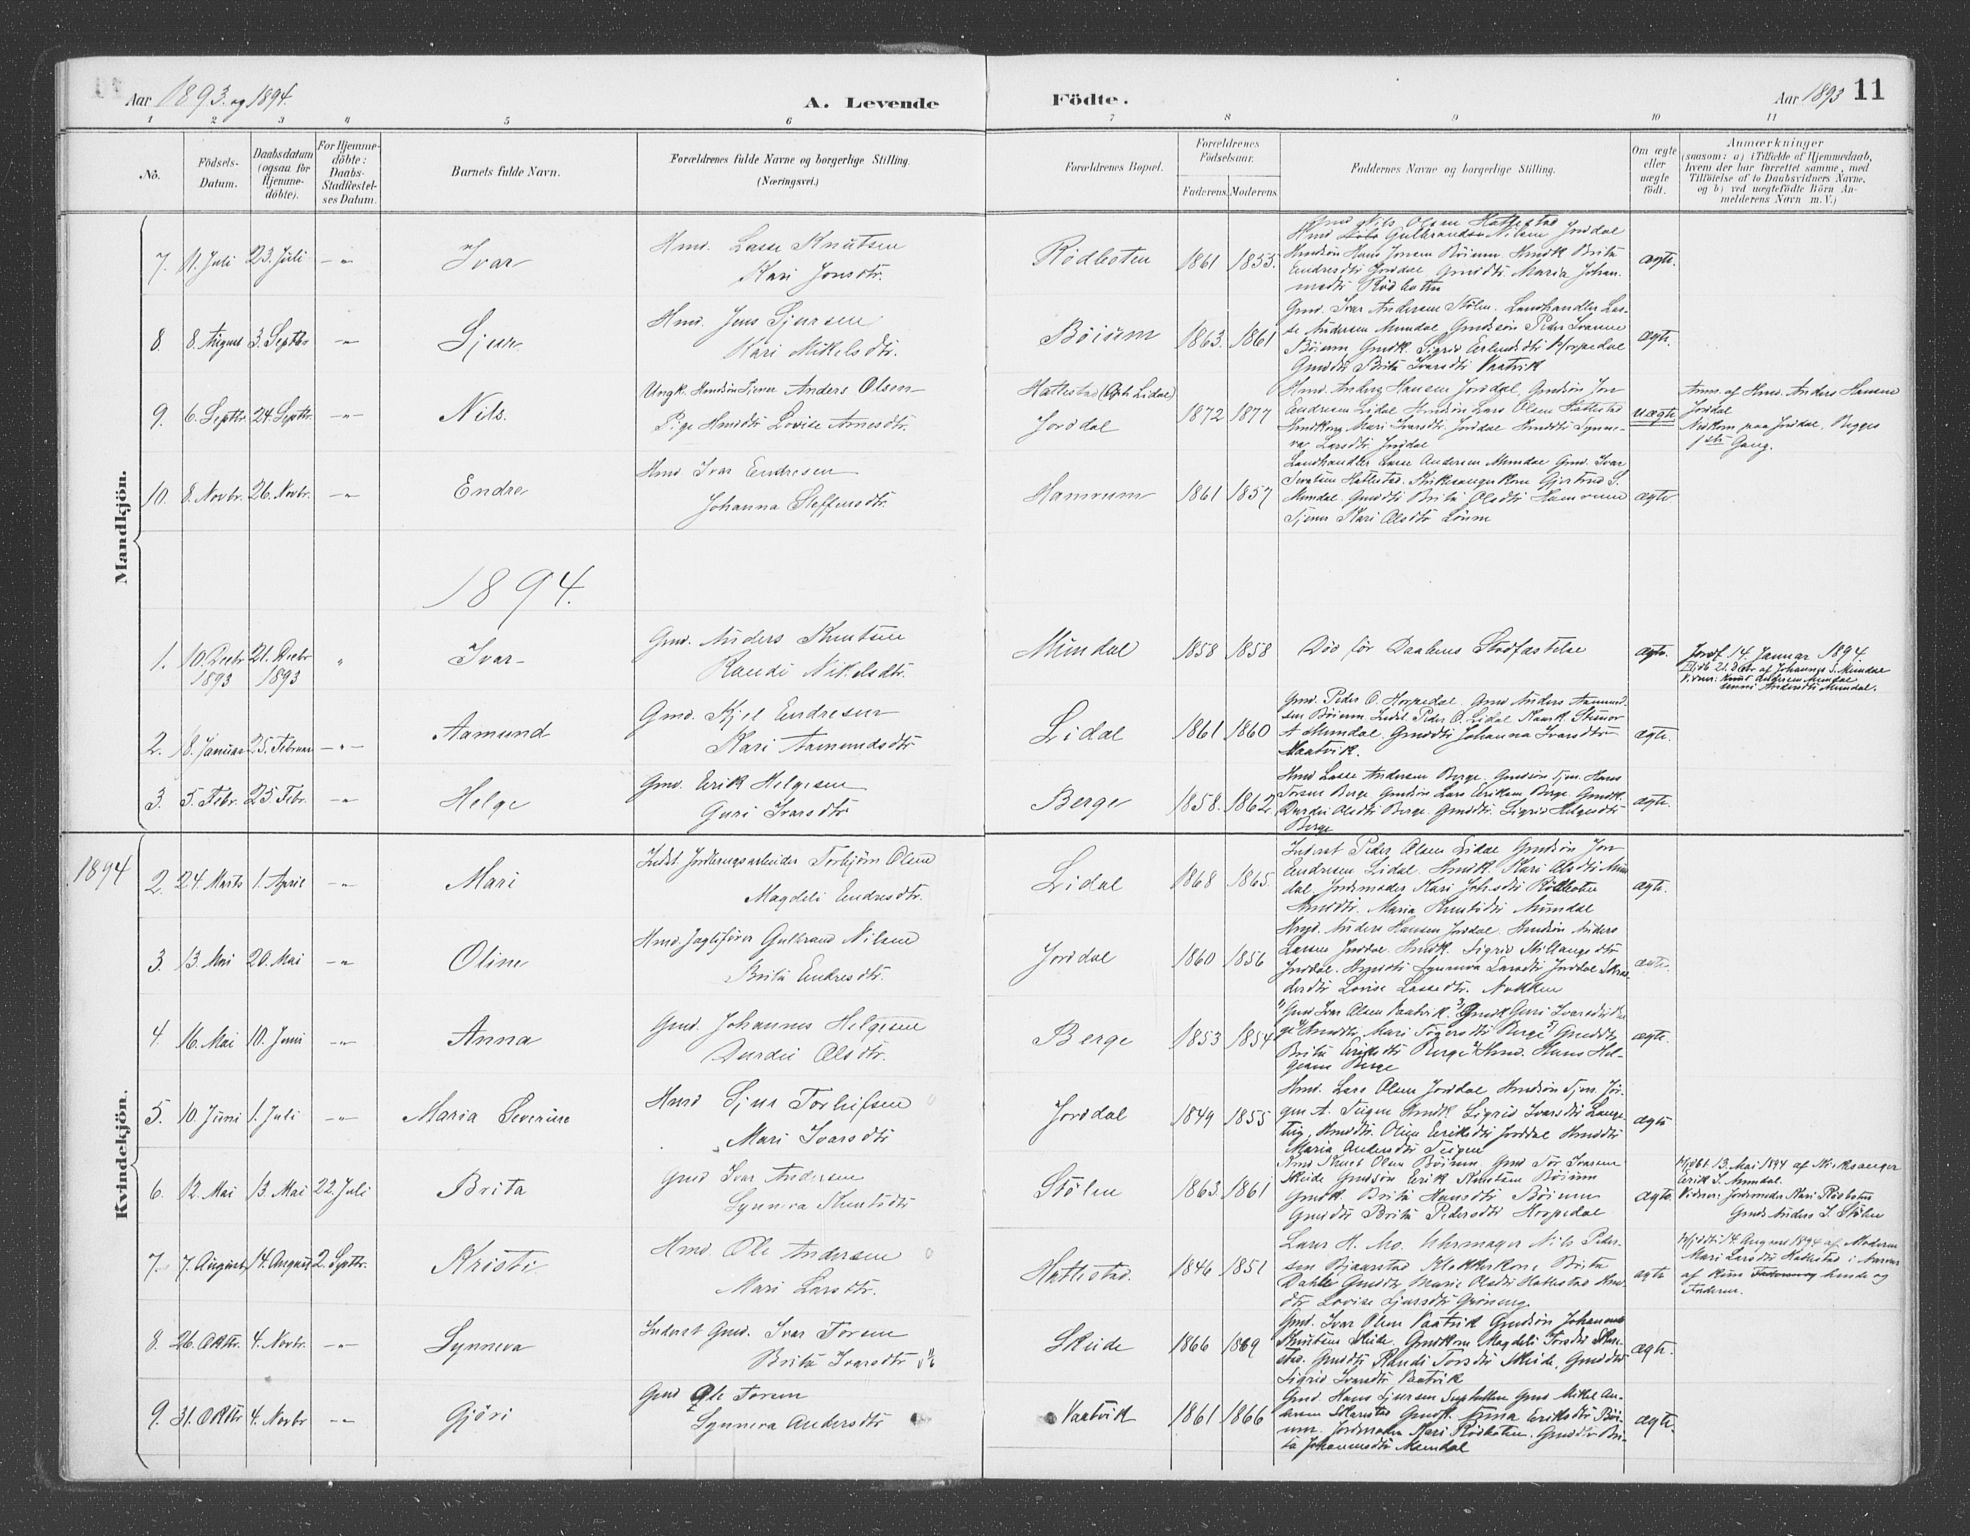 Aar 1893 og 1894.
A. Levende
Födte.
Aar 1893
11
1 2 3 4 5 6 7 8 9 10 11
No.
Födsels-
Datum.
Daabsdatum
(ogsaa for
Hjemme-
döbte).
For Hjemme-
döbte:
Daabs-
Stadfæstel-
ses Datum.
Barnets fulde Navn.
Forældrenes fulde Navne og borgerlige Stilling.
(Næringsvei.)
Forældrenes Bopæl.
Forældrenes
Födselsaar.
Faderens.
Moderens.
Faddernes Navne og borgerlige Stilling.
Om ægte
eller
uægte
födt.
Anmærkninger
(saasom: a) i Tilfælde af Hjemmedaab,
hvem der har forrettet samme, med
Tilföielse af to Daabsvidners Navne,
og b) ved uægtefödte Börn An-
melderens Navn m. V.)
Mandkjön.
7. 11. Juli 23. Juli Ivar Gmd. Lasse Knutsen
Kari Jonsdtr.
Rödbotten 1861 1855.
Gmd Nils Olsen Hattestad
Hmd Gulbrandsen Nilsen Jordal
Endresdtr Jordal Gmdtr. Maria Johan-
nesdtr Rödbotten
ægte.
8. 8. August 3. Septbr Sjur Hmd. Jens Sjursen
Kari Mikelsdtr.
Böium 1863. 1861
Gmd. Ivar Andersen Stölen. Landhandler Las-
se Andersen Mundal Gmdsön Peder Ivarsen
Böium Gmdk. Sigrid Erlendsdtr Horpedal
Gmdtr Brita Ivarsdtr Vaatvik
ægte.
9. 6. Septbr 24. Septbr. Nils. Ungk. Hmdsön Tjener Anders Olsen
Pige Hmdtr Lovise Arnesdtr.
Hattestad (Oph. Lidal)
Jordal
1872 1877
Hmd. Anders Hansen Jordal, Gmdsön Jon
Endresen Lidal Hmdsön Lars Olsen Hattestad
Hmdkone Mari Ivarsdtr. Jordal Hmdtr Synne-
va Larsdtr Jordal
uægte
Anm. af Hmd. Anders Hansen
Jordal
Nedkom paa Jordal, Begges
1ste Gang.
10. 8. Novbr. 26. Novbr. Endre Hmd. Ivar Endresen
Johanna Steffensdtr.
Hamrum 1861 1857
Landhandler Lasse Andersen Mundal Gmd. Ivar
Hattestad. Kirkesangerkone Gjertrud S.
Mundal, Gmdtr Brita Olsdtr Hamrum
Tjener Kari Olsdtr
ægte
1894.
1. 10. Decbr
1893
21. Decbr
1893
Ivar Gmd. Anders Knutsen
Randi Mikelsdtr.
Mundal 1858 1858 Död før Daabens Stadfæstelse ægte.
Jordf. 14. Januar 1894.
Hjdb. 21. Decbr af Johannes S. Mundal
Vidner: Knut Andersen Mundal
Andersdtr Mundal.
2. 18. Januar 25. Februar Aamund Gmd. Kjel Endresen
Kari Aamundsdtr
Lidal 1861 1860
Gmd. Peder O. Horpedal. Gmd Anders Aamund-
sen Böium Inderst Peder O. Lidal
Mundal, Gmdtr Johanna Ivarsdtr
Vaatvik.
ægte.
3. 5. Febr. 25. Febr. Helge Gmd. Eirik Helgesen
Guri Ivarsdtr
Berge 1858. 1862.
Hmd Lasse Andersen Berge. Gmdsön Tjen. Hans
Torsen Berge Gmdsön Lars Eriksen Berge. Gmdk.
Durdei Olsdtr Berge. Gmdtr. Sigrid Helgesdtr
Berge
ægte.
Kvindekjön.
1894
2. 24 Marts 1. April Mari Indst Torbjörn Olsen
Magdeli Endresdtr.
Lidal 1868 1865.
Inderst Peder Olsen Lidal Gmdsön Jon
Endresen Lidal. Hmdk. Kari Olsdtr Mun-
dal, Jordmoder Kari Johsdtr Rödbotten
Hmdtr. Maria Knutsdtr Mundal
ægte.
3. 13. Mai 20. Mai Oline Hmd. Gulbrand Nilsen
Brita Endresdtr.
Jordal 1860 1856
Hmd. Anders Hansen Jordal, Hmdsön Anders
Larsen Jordal. Hmdk. Sigrid
Jordal. Hmdtr Synneva Larsdtr Jordal
Lovise Lassedtr.
ægte.
4. 16. Mai 10. Juni Anna Gmd. Johannes Helgesen
Durdei Olsdtr.
Berge 1853 1854
Gmd Ivar Olsen Vaatvik. Gmdk Guri Ivarsdtr Ber-
ge Gmdtr Mari Berge Gmdtr.
Brita Eriksdtr Berge Hmd. Hans Hel-
gesen Berge
ægte.
5. 10. Juni 1. Juli Maria Severine Hmd Sjur Torleifsen
Mari Ivarsdtr
Jordal 1849 1855
Hmd. Lars Olsen Jordal Hmdsön Tjen. Jör-
gen A. Teigen Hmdk Sigrid Ivarsdtr
Hmdtr. Oline Eriksdtr Jordal Hmdtr
Maria Andersdtr Teigen
ægte
6. 12. Mai 13. Mai 22. Juli Brita Gmd Ivar Andersen
Synneva Knutsdtr
Stölen 1863. 1861
Gmd Knut Olsen Böium Gmd Tor Ivarsen
Skeide Gmdsön Erik Knutsen Böium
Gmdk. Brita Hansdtr Böium
Gmdtr Brita Pedersdtr Horpedal
ægte.
Hjdbt. 13. Mai 1894 af Kirksanger
Erik S. Mundal.
Vidner: Jordmoder Kari Rödbotten
Gmd. Anders I. Stölen
7. 7. August, 14. August 2. Septbr. Kristi Hmd Ole Andersen
Mari Larsdtr.
Hattestad. 1846 1851
Lars H. Mo. Uhrmager Nils Peder-
sen Bjaastad Klokkerkone Brita
Dahle Gmdtr Marie Olsdtr Hattestad
Lovise Sjursdtr
ægte
Hjdbt. 14 August 1894 af Moderen
Mari Larsdtr Hattestad i Nærvær
af kun hende og
Faderen.
8. 26. Oktbr. 4. Novbr. Synneva Inderst Gmd. Ivar Torsen
Brita Ivarsdtr
Skeide 1866 1869
Gmd. Ivar Olsen Vaatvik Gmdsön Johannes
Knutsen Skeide, Gmdkone Magdeli Torsdtr
Gmdtr Randi Torsdtr Skeide, Gmdtr
Sigrid Ivarsdtr Vaatvik
ægte.
9. 31. Oktbr 4. Novbr Gjöri Gmd Ole Torsen
Synneva Andersdtr
Vaatvik 1861 1866
Gmd. Hans Sjursen Gmd Mikel An-
Skarestad Gmdk. Anna Eriksdtr Böi-
um. Jordmoder Kari Rödbotten. Gmdtr Bri-
ta Johannesdtr Mundal
ægte.